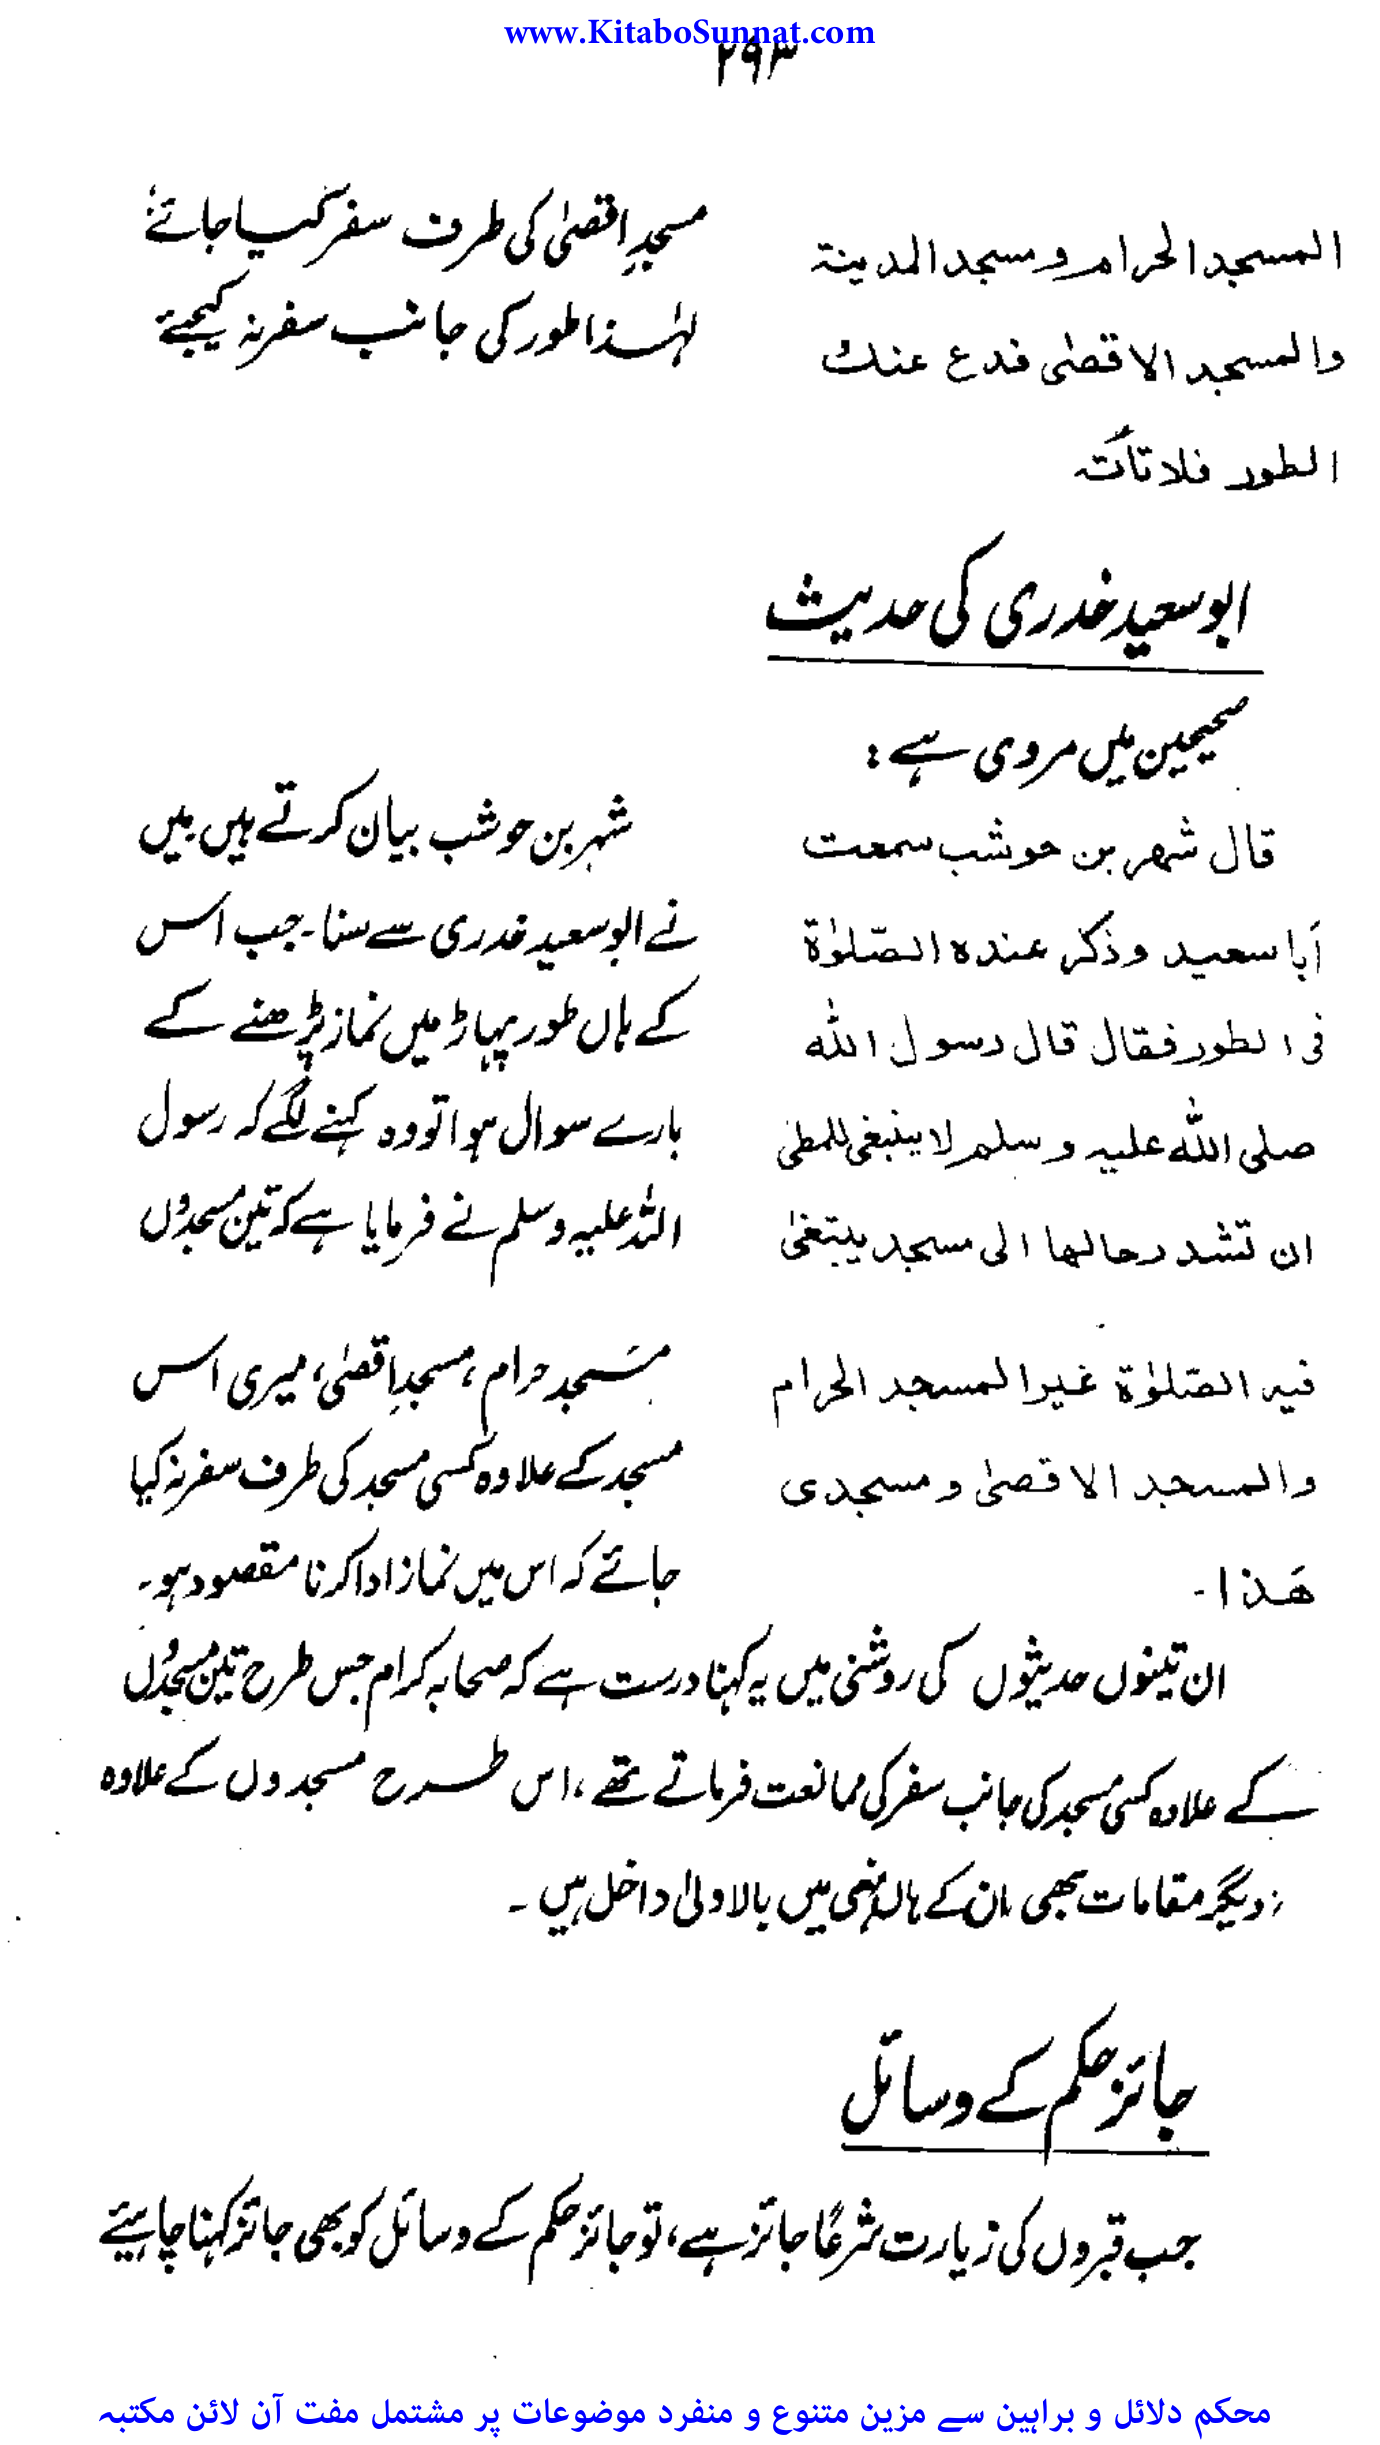 www.KitaboSunnat.com
۲۹۳
المسجد الحرام و مسجد المدینۃ
والمسجد الاقصٰی فدع عنك
الطور فلا تأتہ
مسجدِ اقصیٰ کی طرف سفر کیا جائے
لہٰذا طور کی جانب سفر نہ کیجیے
ابو سعید خدری کی حدیث
صحیحین میں مروی ہے :
قال شھر بن حوشب سمعت
اَبا سعید و ذکر عندہ الصّلوٰۃ
فی الطور فقال قال رسول اللہ
صلی اللہ علیہ و سلم لا ینبغی للمطی
ان تشد رحالھا الی مسجد یبتغیٰ
فیہ الصّلوٰۃ غیر المسجد الحرام
والمسجد الاقصیٰ و مسجدی
ھَذا ۔
شہر بن حوشب بیان کرتے ہیں میں
نے ابو سعید خدری سے سنا ۔ جب اس
کے ہاں طور پہاڑ میں نماز پڑھنے کے
بارے سوال ہوا تو وہ کہنے لگے کہ رسول
اللہ علیہ وسلم نے فرمایا ہے کہ تین مسجدوں
مسجد حرام ، مسجدِ اقصیٰ ، میری اس
مسجد کے علاوہ کسی مسجد کی طرف سفر نہ کیا
جائے کہ اس میں نماز ادا کرنا مقصود ہو ۔
ان تینوں حدیثوں کی روشنی میں یہ کہنا درست ہے کہ صحابہ کرام جس طرح تین مسجدوں
کے علاوہ کسی مسجد کی جانب سفر کی ممانعت فرماتے تھے ، اس طرح مسجدوں کے علاوہ
دیگر مقامات بھی ان کے ہاں نہی میں بالاولیٰ داخل ہیں ۔
جائز حکم کے وسائل
جب قبروں کی زیارت شرعًا جائز ہے ، تو جائز حکم کے وسائل کو بھی جائز کہنا چاہیئے
محکم دلائل و براہین سے مزین متنوع و منفرد موضوعات پر مشتمل مفت آن لائن مکتبہ